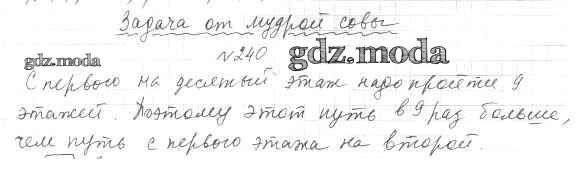 Задача от мудрой совы
№240 gdz.moda
gdz.moda
С первого на десятый этаж надо пройти 9
этажей. Поэтому этот путь в 9 раз больше,
чем путь с первого этажа на второй.